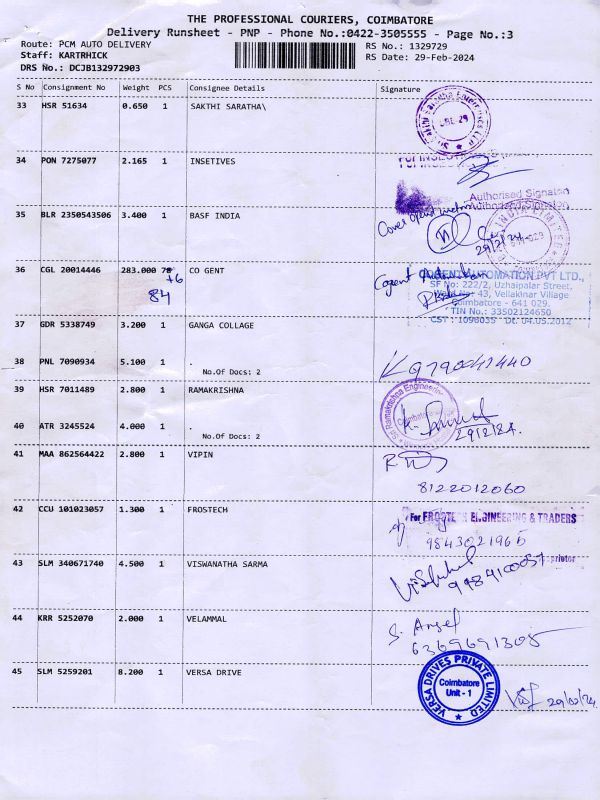 THE PROFESSIONAL COURIERS, COIMBATORE
Delivery Runsheet - PNP - Phone No.:0422-3505555 - Page No.:3
Route: PCM AUTO DELIVERY
RS No.: 1329729
Staff: KARTRHICK
RS Date: 29-Feb-2024
DRS No.: DCJB132972903
S No Consignment No Weight PCS Consignee Details Signature
33 HSR 51634 0.650 1 SAKTHI SARATHA\
34 PON 7275077 2.165 1 INSETIVES
Authorised Signator
35 BLR 2350543506 3.400 1 BASF INDIA
29/2/24
36 CGL 20014446 283.000 78 CO GENT
+6
84
Cogent
COGENT AUTOMATION PVT LTD.,
SF No: 222/2, Uzhaipalar Street,
Ward No: 43, Vellakinar Village
Coimbatore - 641 029.
TIN No.: 33502124650
CST : 1098035 Dt. 04.05.2012
37 GDR 5338749 3.200 1 GANGA COLLAGE
38 PNL 7090934 5.100 1 .
No.Of Docs: 2
9790041440
39 HSR 7011489 2.800 1 RAMAKRISHNA
Sri Ramakrishna Engineering
Coimbatore
40 ATR 3245524 4.000 1 .
No.Of Docs: 2
29/2/24.
41 MAA 862564422 2.800 1 VIPIN
8122012060
42 CCU 101023057 1.300 1 FROSTECH
For FROSTECH ENGINEERING & TRADERS
9843021965
prietor
43 SLM 340671740 4.500 1 VISWANATHA SARMA
44 KRR 5252070 2.000 1 VELAMMAL
S. Angel
6369691305
45 SLM 5259201 8.200 1 VERSA DRIVE
VERSA DRIVES PRIVATE LIMITED
Coimbatore
Unit - 1
29/02/24.